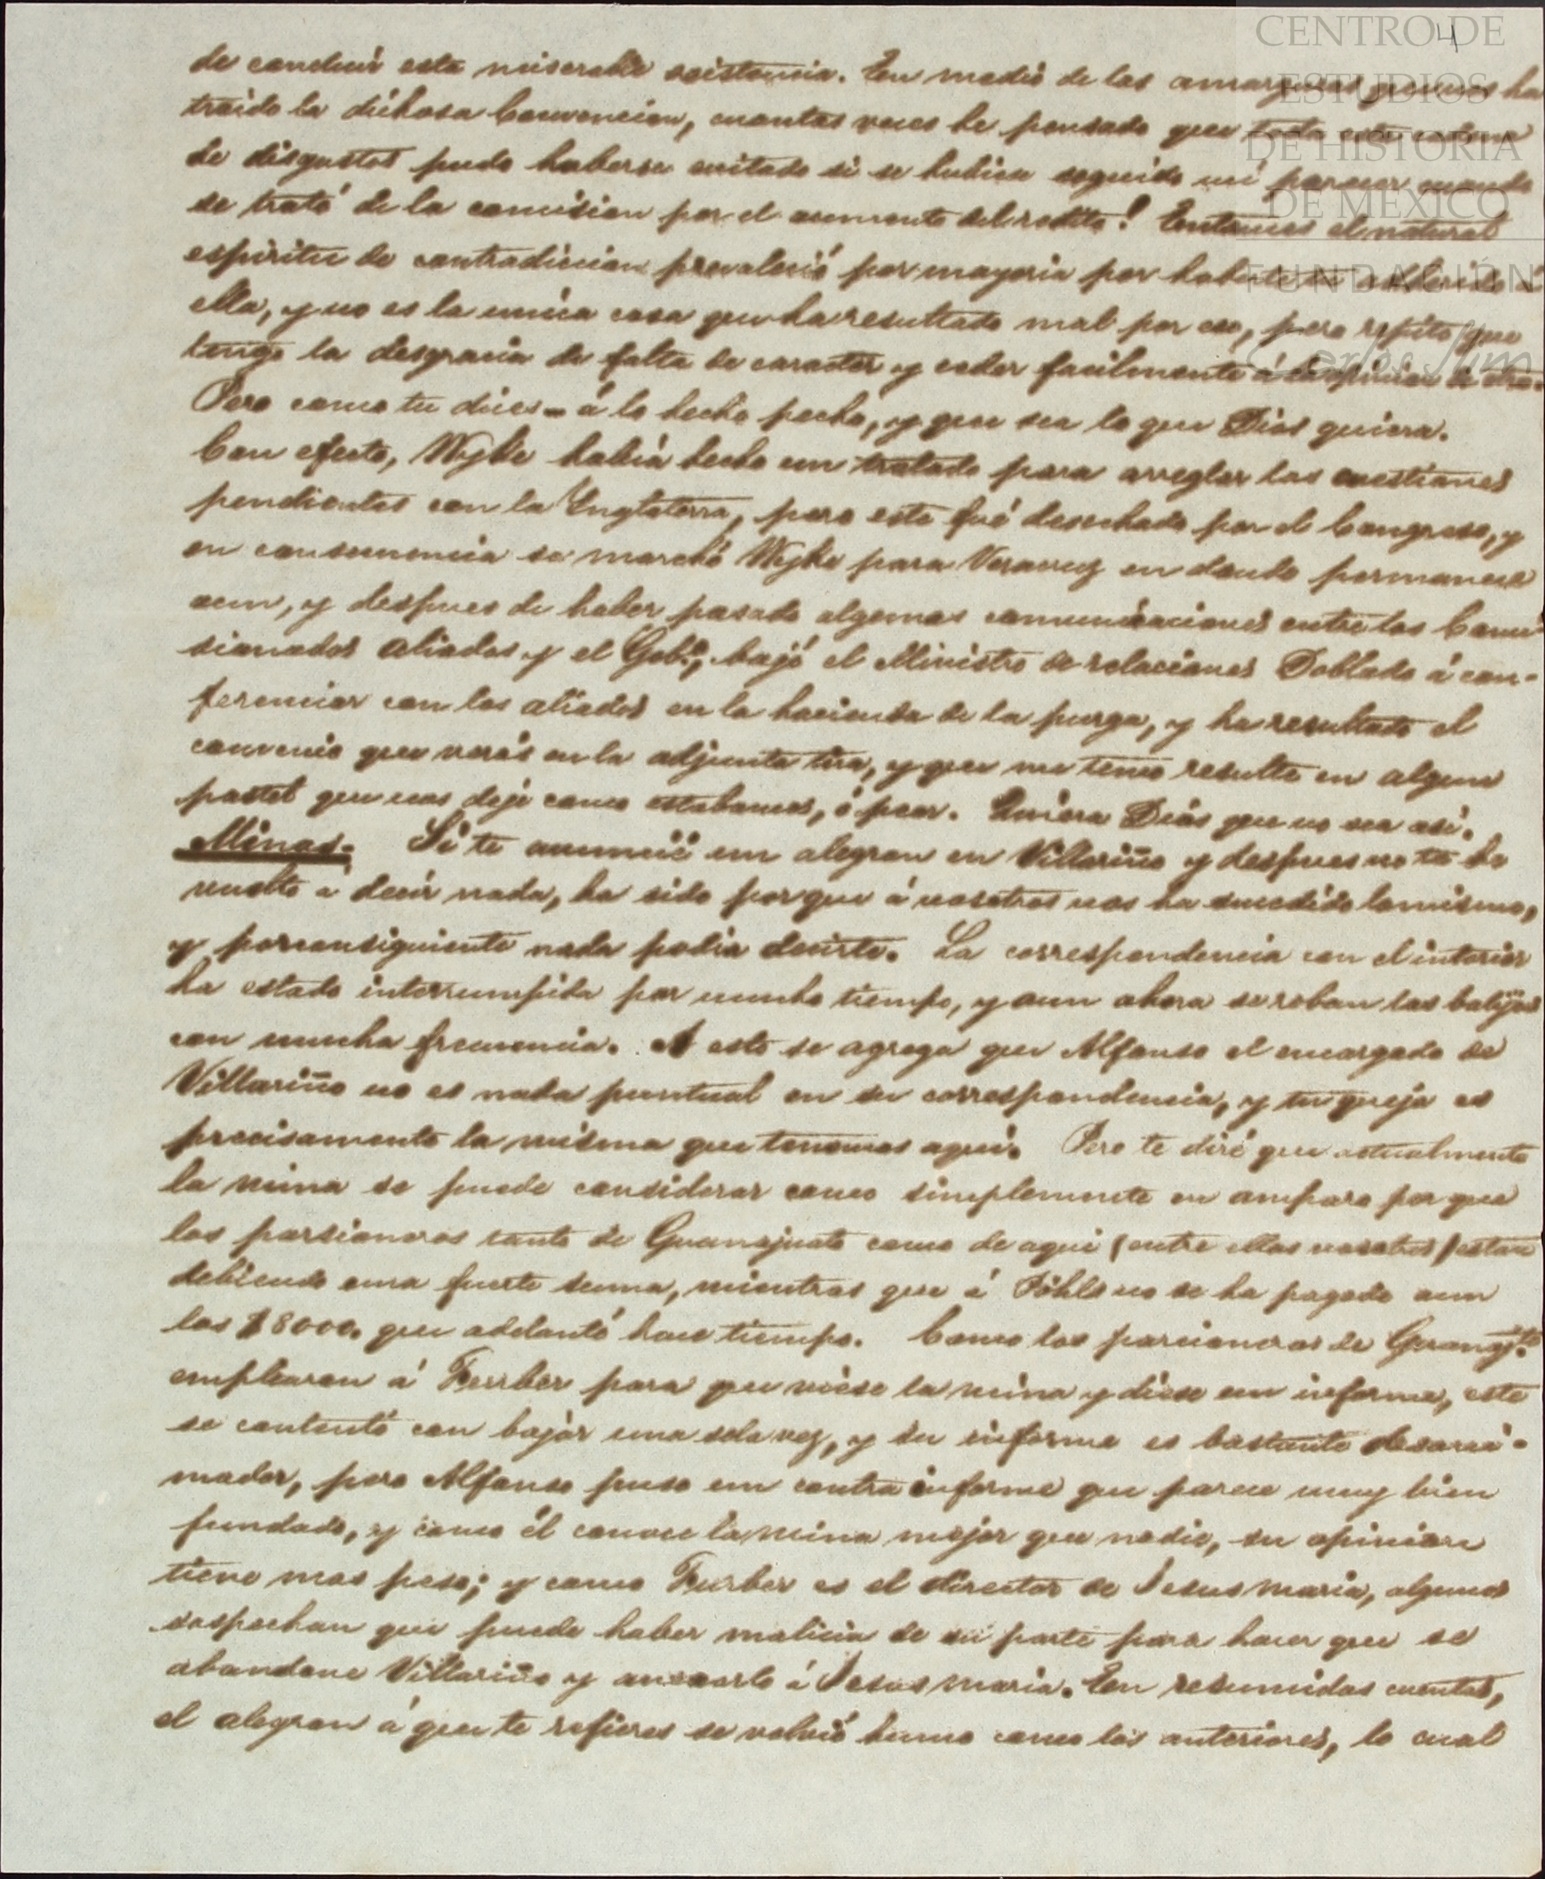 4
CENTRO DE
ESTUDIOS
DE HISTORIA
DE MÉXICO
FUNDACIÓN
Carlos Slim
de conducir esta miserable existencia. En medio de las amarguras que nos ha
traido la dichosa Convencion, cuantas veces he pensado que toda esta cadena
de disgustos pudo haberse evitado si se hubiera seguido mi parecer cuando
se trató de la comision por el aumento del redito! Entonces el natural
espiritu de contradiccion prevaleció por mayoria por haberte tu adherido á
ella, y no es la unica cosa que ha resultado mal por eso, pero repito que
tengo la desgracia de falta de caracter y ceder facilmente á la opinion de otro.
Pero como tu dices – á lo hecho pecho, y que sea lo que Dios quiera.
Con efecto, Wyke habia hecho un tratado para arreglar las cuestiones
pendientes con la Inglaterra, pero este fué desechado por el Congreso, y
en consecuencia se marchó Wyke para Veracruz en donde permanece
aun, y despues de haber pasado algunas comunicaciones entre los Comi-
sionados aliados y el Gob.º, bajó el Ministro de relaciones Doblado á con-
ferenciar con los aliados en la hacienda de la purga, y ha resultado el
convenio que verás en la adjunta tira, y que me temo resulte en algun
pastel que nos deje como estabamos, ó peor. Quiera Dios que no sea asi.
Minas. Si te anuncié un alegron en Villariño y despues no te he
vuelto a decir nada, ha sido porque á nosotros nos ha sucedido lo mismo,
y por consiguiente nada podia decirte. La correspondencia con el interior
ha estado interrumpida por mucho tiempo, y aun ahora se roban las balijas
con mucha frecuencia. A esto se agrega que Alfonso el encargado de
Villariño no es nada puntual en su correspondencia, y tu queja es
precisamente la misma que tenemos aqui. Pero te diré que actualmente
la mina se puede considerar como simplemente en amparo por que
los parcioneros tanto de Guanajuato como de aqui (entre ellos nosotros) estan
debiendo una fuerte suma, mientras que á Pöhls no se ha pagado aun
los $8000. que adelantó hace tiempo. Como los parcioneros de Guanaj.to
emplearon á Furber para que viese la mina y diese un informe, este
se contentó con bajar una sola vez, y su informe es bastante desani-
mador, pero Alfonso puso un contra informe que parece muy bien
fundado, y como él conoce la mina mejor que nadie, su opinion
tiene mas peso; y como Furber es el director de Jesus Maria, algunos
sospechan que puede haber malicia de su parte para hacer que se
abandone Villariño y anexarlo á Jesus Maria. En resumidas cuentas,
el alegron á que te refieres se volvió humo como los anteriores, lo cual